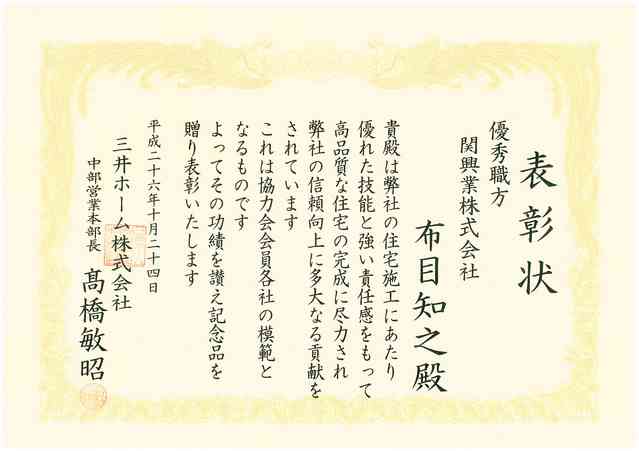 表彰状
優秀職方
関興業株式会社
布目知之殿
貴殿は弊社の住宅施工にあたり
優れた技能と強い責任感をもって
高品質な住宅の完成に尽力され
弊社の信頼向上に多大なる貢献を
されています
これは協力会会員各社の模範と
なるものです
よってその功績を讃え記念品を
贈り表彰いたします
平成二十六年十月二十四日
三井ホーム株式会社
中部営業本部長
髙橋敏昭